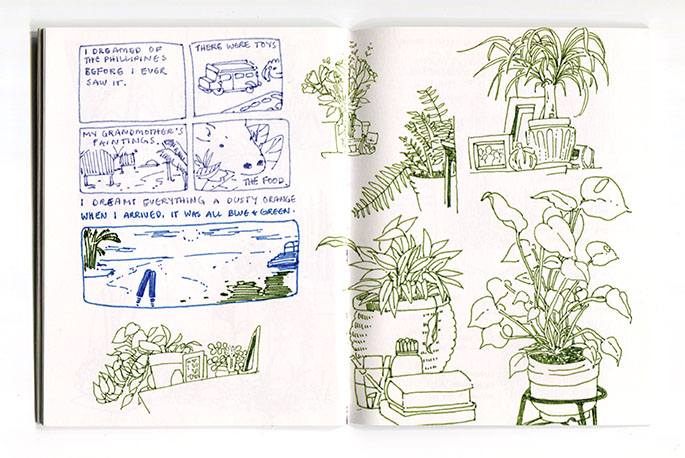 I DREAMED OF
THE PHILLIPINES
BEFORE I EVER
SAW IT.
THERE WERE TOYS
MY GRANDMOTHER'S
PAINTINGS.
THE FOOD.
I DREAMT EVERYTHING A DUSTY ORANGE
WHEN I ARRIVED, IT WAS ALL BLUE & GREEN.